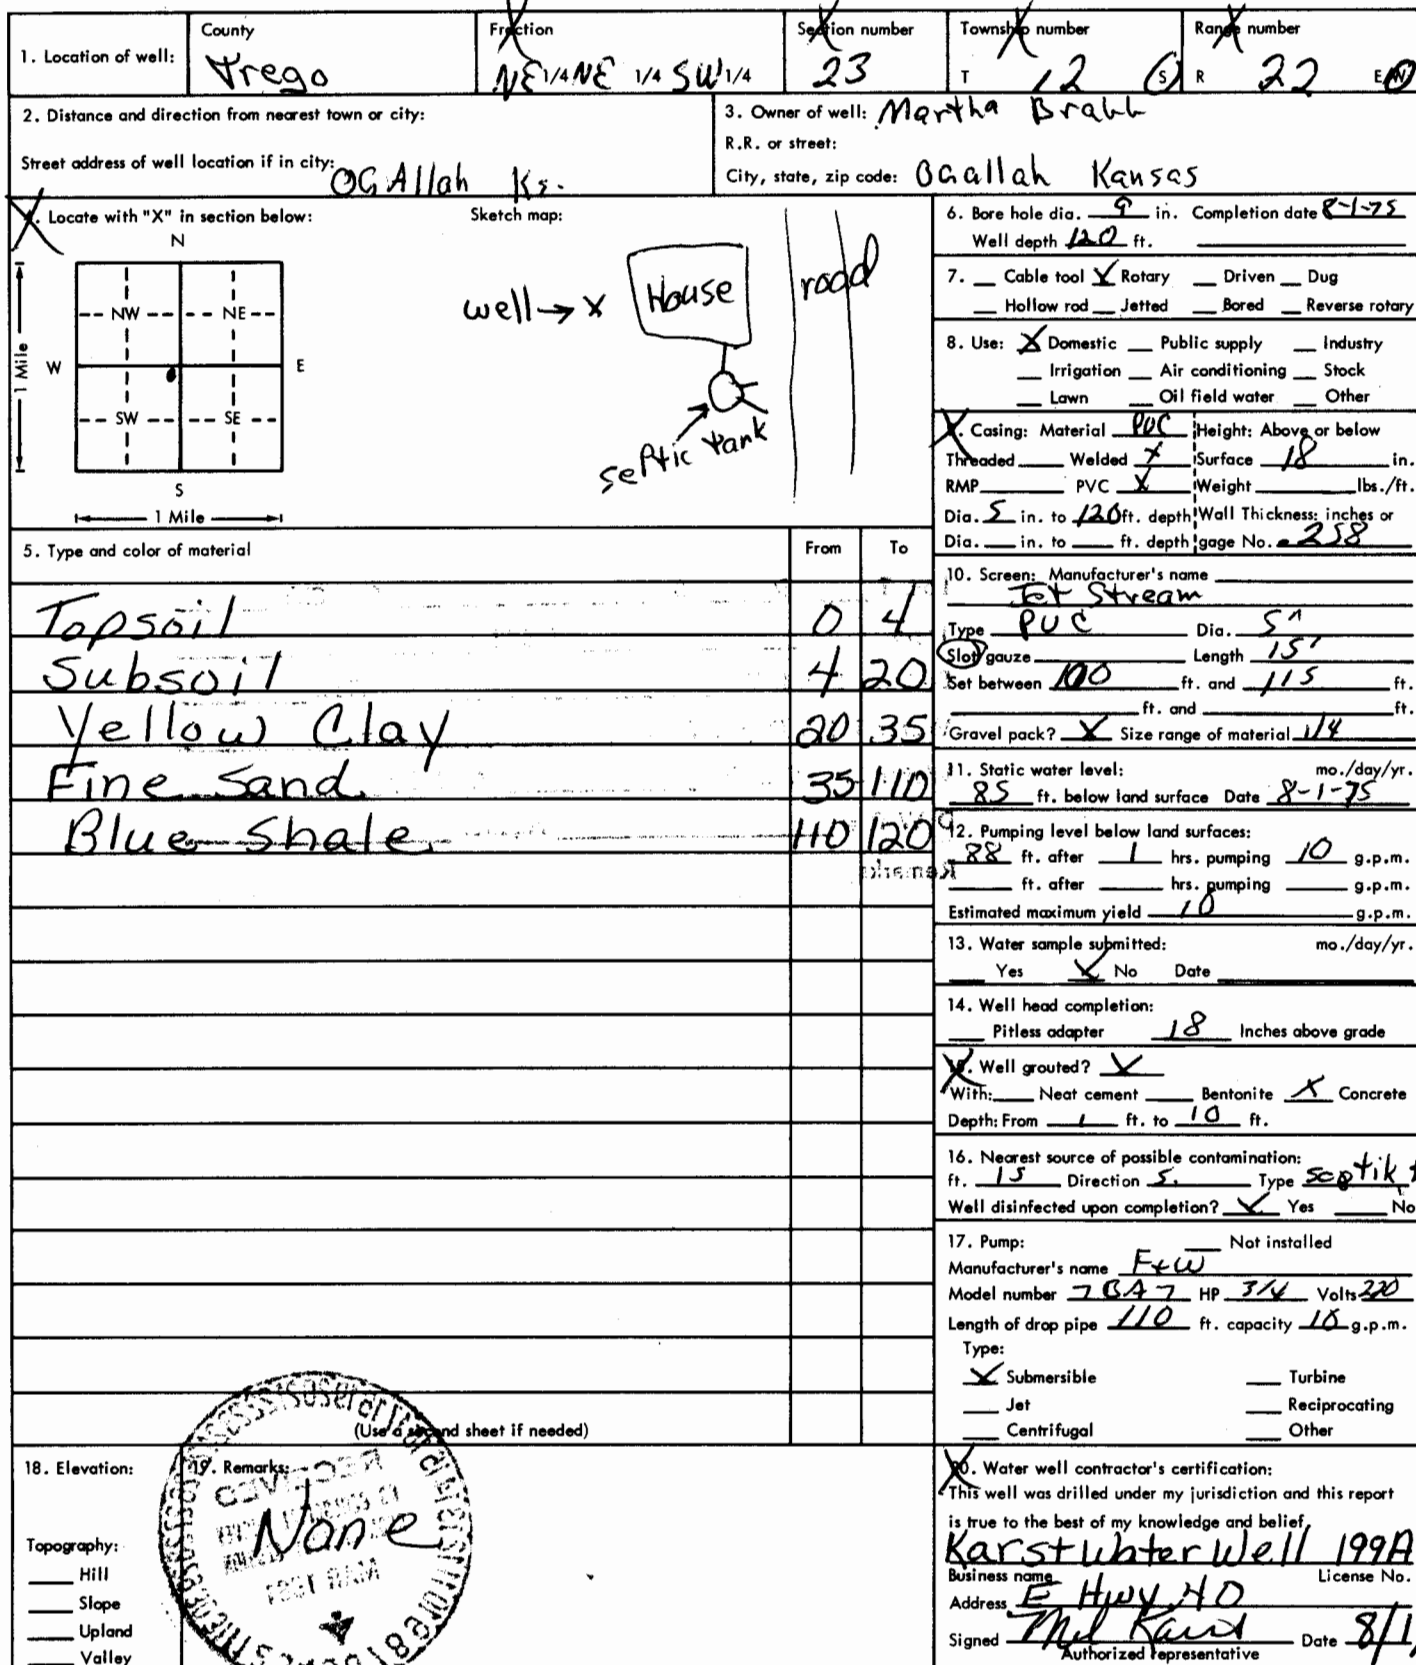 1. Location of well: County Trego Fraction NE 1/4 NE 1/4 SW 1/4 Section number 23 Township number T 12 S Range number R 22 E W
2. Distance and direction from nearest town or city:
Street address of well location if in city: OGAllah Ks.
3. Owner of well: Martha
R.R. or street:
City, state, zip code: OGallah Kansas
4. Locate with "X" in section below:
N
NW NE
W E
SW SE
S
1 Mile
1 Mile
Sketch map:
well → x House road
septic tank
5. Type and color of material From To
Topsoil 0 4
Subsoil 4 20
Yellow Clay 20 35
Fine Sand 35 110
Blue Shale 110 120
(Use a second sheet if needed)
6. Bore hole dia. 9 in. Completion date 8-1-75
Well depth 120 ft.
7. Cable tool X Rotary Driven Dug
Hollow rod Jetted Bored Reverse rotary
8. Use: X Domestic Public supply Industry
Irrigation Air conditioning Stock
Lawn Oil field water Other
9. Casing: Material PVC Height: Above or below
Threaded Welded X Surface 18 in.
RMP PVC X Weight lbs./ft.
Dia. 5 in. to 120 ft. depth Wall Thickness: inches or
Dia. in. to ft. depth gage No. .258
10. Screen: Manufacturer's name
Jet Stream
Type PVC Dia. 5"
Slot gauze Length 15'
Set between 100 ft. and 115 ft.
ft. and ft.
Gravel pack? X Size range of material 1/4
11. Static water level: mo./day/yr.
85 ft. below land surface Date 8-1-75
12. Pumping level below land surfaces:
88 ft. after 1 hrs. pumping 10 g.p.m.
ft. after hrs. pumping g.p.m.
Estimated maximum yield 10 g.p.m.
13. Water sample submitted: mo./day/yr.
Yes X No Date
14. Well head completion:
Pitless adapter 18 Inches above grade
15. Well grouted? X
With: Neat cement Bentonite X Concrete
Depth: From 1 ft. to 10 ft.
16. Nearest source of possible contamination:
ft. 15 Direction S. Type septik
Well disinfected upon completion? X Yes No
17. Pump: Not installed
Manufacturer's name F+W
Model number 7BA7 HP 3/4 Volts 220
Length of drop pipe 110 ft. capacity 10 g.p.m.
Type:
X Submersible Turbine
Jet Reciprocating
Centrifugal Other
18. Elevation:
Topography:
Hill
Slope
Upland
Valley
19. Remarks:
None
20. Water well contractor's certification:
This well was drilled under my jurisdiction and this report
is true to the best of my knowledge and belief.
Karst Water Well 199A
Business name License No.
Address E Hwy 40
Signed Date 8/1
Authorized representative